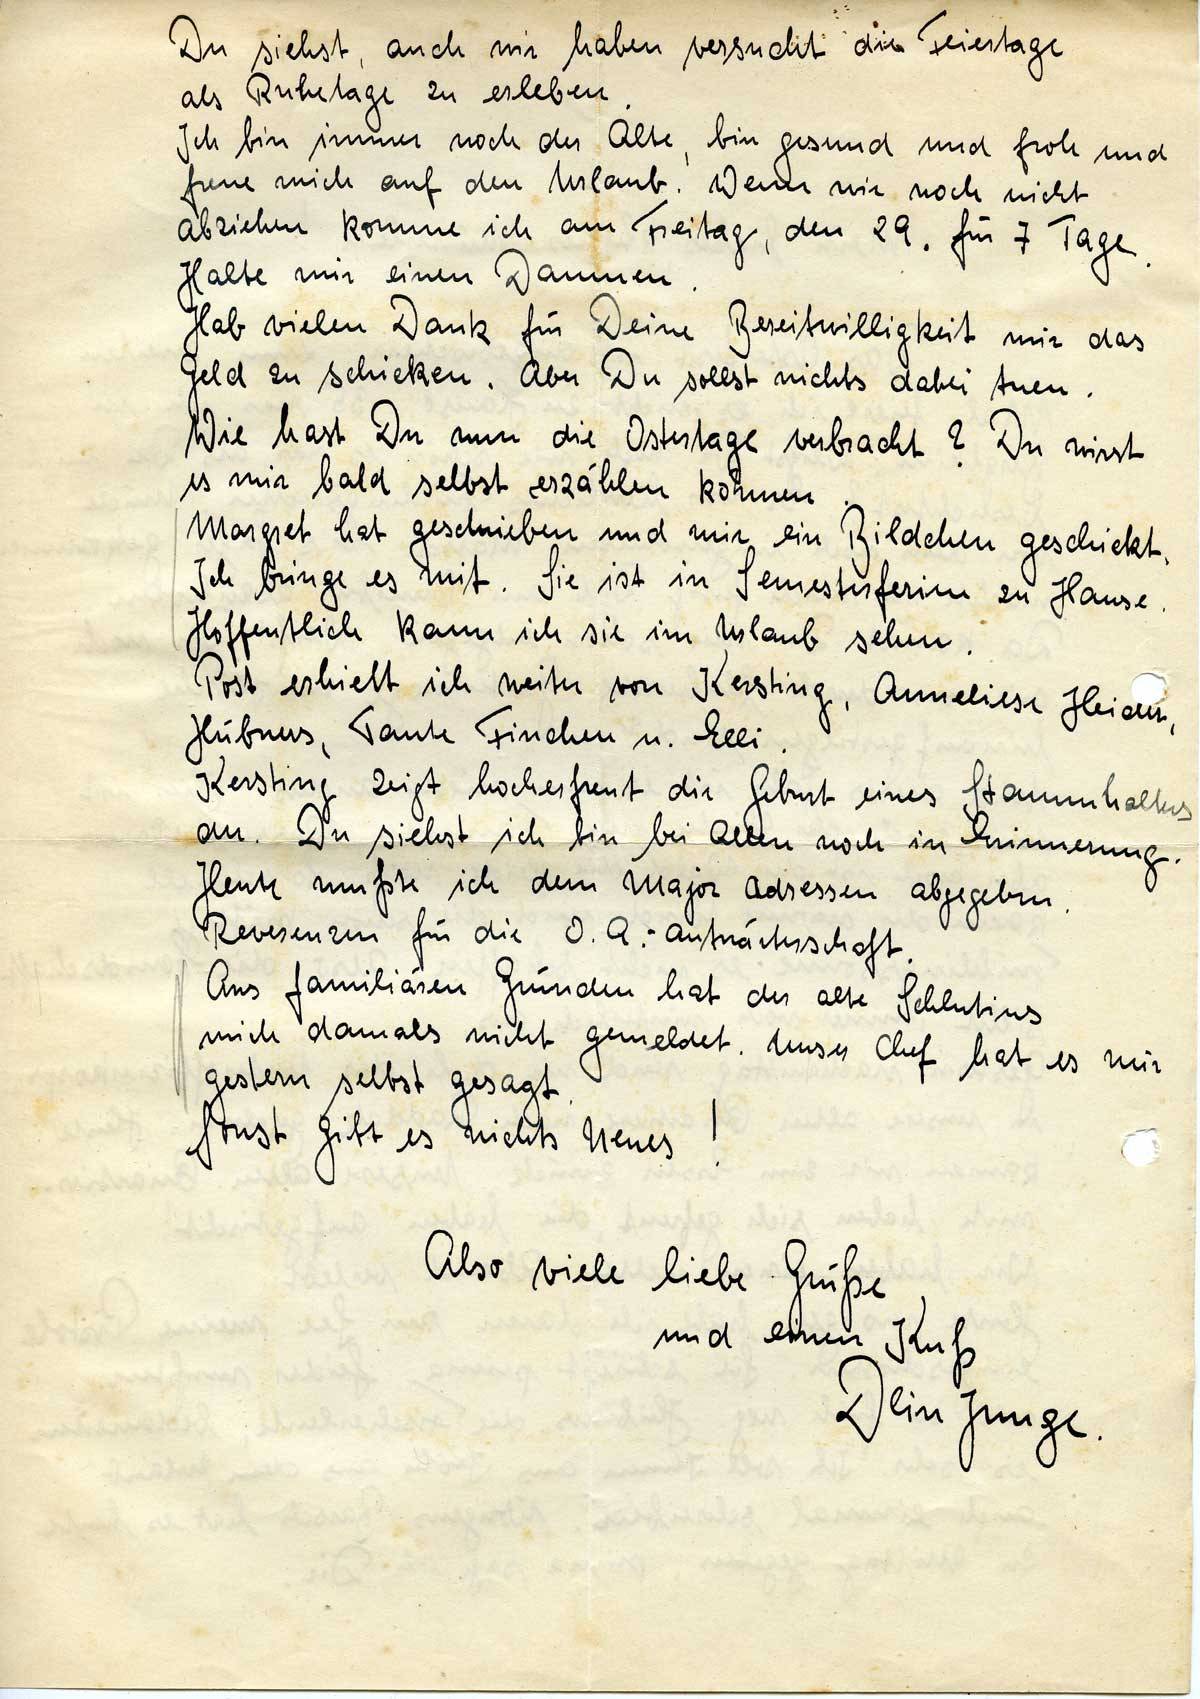 Du siehst, auch wir haben versucht die Feiertage
als Ruhetage zu erleben.
Ich bin immer noch der Alte, bin gesund und froh und
freue mich auf den Urlaub. Wenn wir noch nicht
abziehen komme ich am Freitag, den 29. für 7 Tage.
Halte mir einen Daumen.
Hab vielen Dank für Deine Bereitwilligkeit mir das
Geld zu schicken. Aber Du sollst nichts dabei tuen.
Wie hast Du nun die Ostertage verbracht? Du wirst
es mir bald selbst erzählen können.
Margret hat geschrieben und mir ein Bildchen geschickt.
Ich bringe es mit. Sie ist in Semesterferien zu Hause.
Hoffentlich kann ich sie im Urlaub sehen.
Post erhielt ich weiter von Kersting, Anneliese Heider,
Hübners, Tante Finchen u. Elli.
Kersting zeigt hocherfreut die Geburt eines Stammhalters
an. Du siehst ich bin bei Allen noch in Erinnerung.
Heute mußte ich dem Major Adressen abgegeben.
Reverenzen für die O.A.-Anwärterschaft.
Aus familiären Gründen hat der alte Schlutius
mich damals nicht gemeldet. Unser Chef hat es mir
gestern selbst gesagt.
Sonst gibt es nichts Neues!
Also viele liebe Grüße
und einen Kuß
Dein Junge.